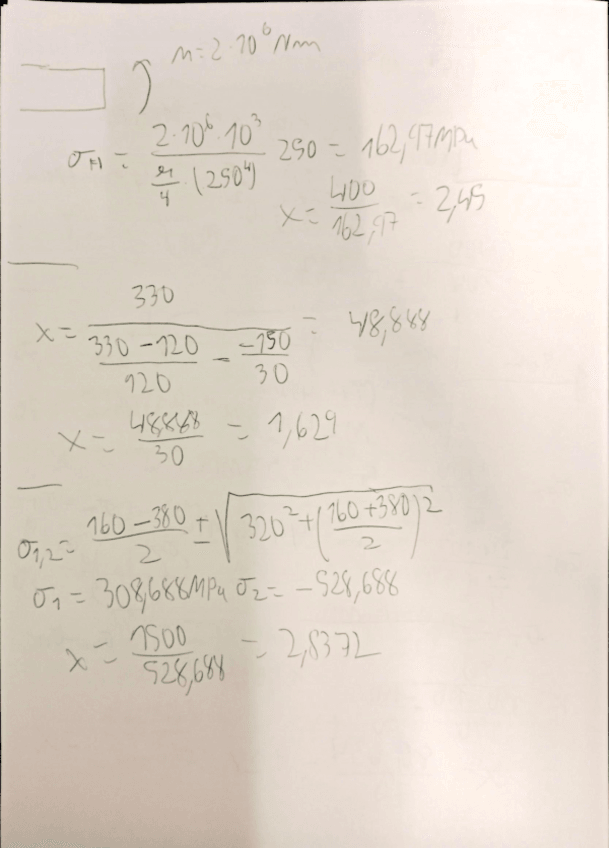 M=2·10⁶Nmm
σM = (2·10⁶·10³)/(π/4·(250⁴)) 250 = 162,97MPa
x = 400/162,97 = 2,45
x = 330/((330-120)/120 - (-150)/30) = 48,888
x = 48,888/30 = 1,629
σ1,2 = (160-380)/2 ± √(320² + ((160+380)/2)²)
σ1 = 308,688MPa σ2 = -528,688
x = 1500/528,688 = 2,8372